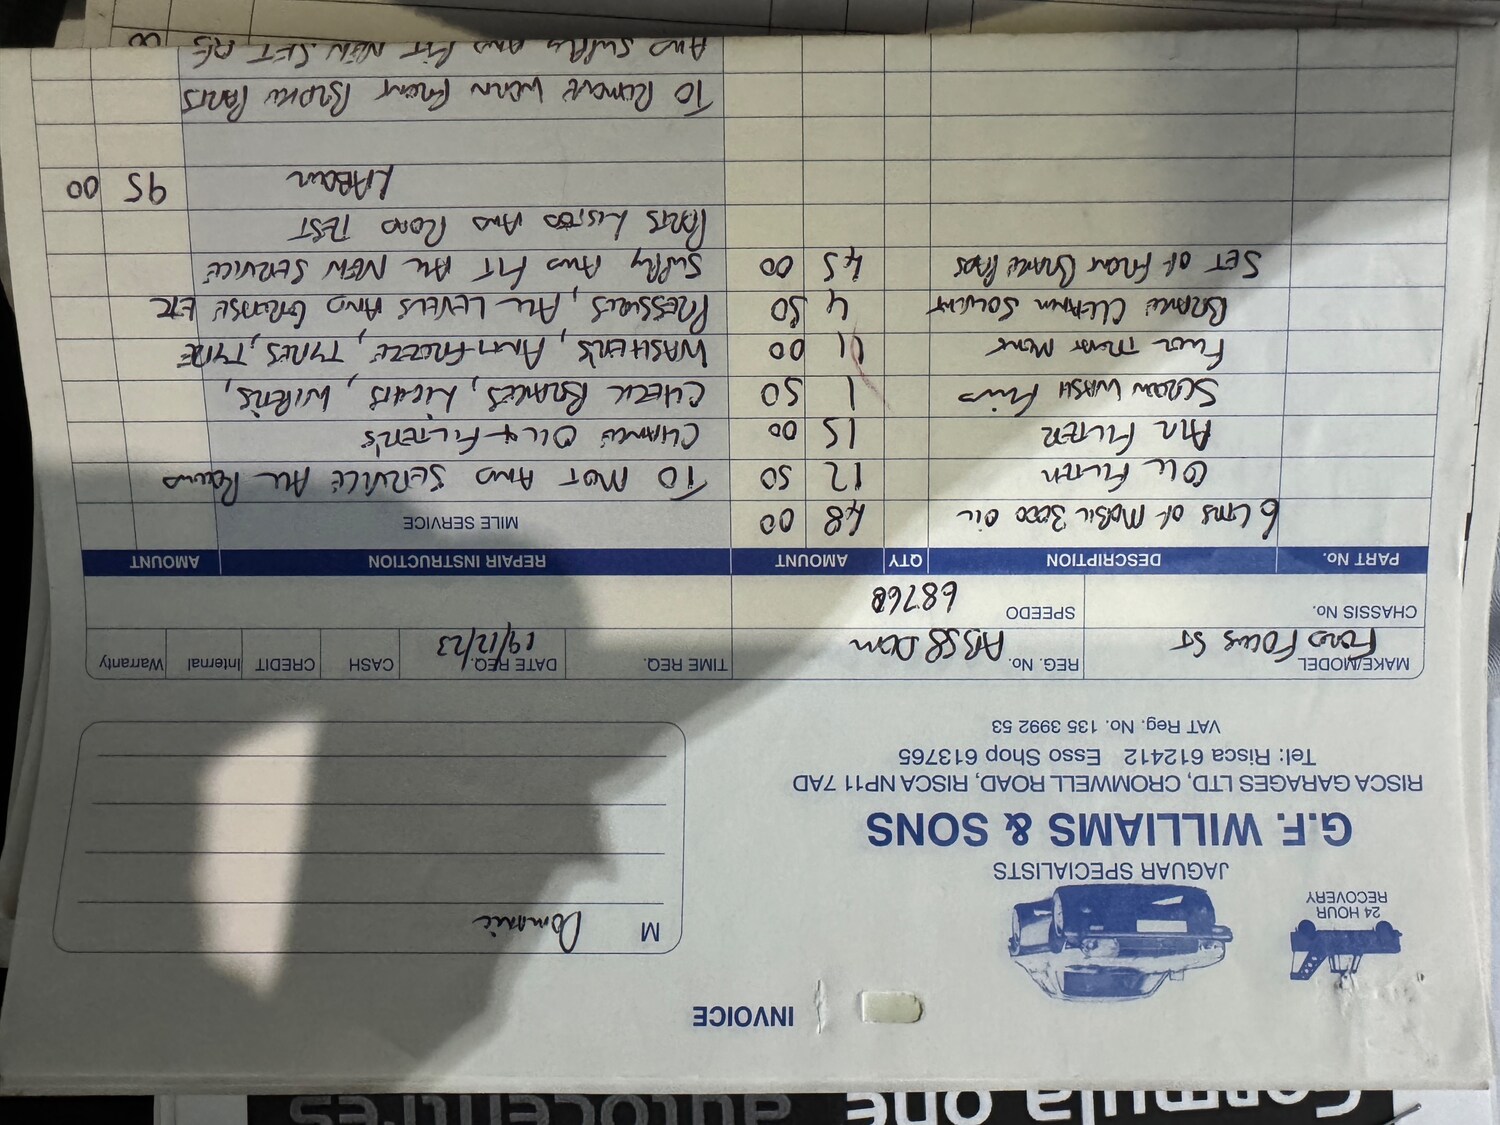 INVOICE
24 HOUR
RECOVERY
JAGUAR SPECIALISTS
G.F. WILLIAMS & SONS
RISCA GARAGES LTD, CROMWELL ROAD, RISCA NP11 7AD
Tel: Risca 612412 Esso Shop 613765
VAT Reg. No. 135 3992 53
M Dominic
MAKE/MODEL Ford Focus ST REG. No. AB58 TIME REQ. DATE REQ. 19/12/23 CASH CREDIT Internal Warranty
CHASSIS No. SPEEDO 68768
PART No. DESCRIPTION QTY AMOUNT REPAIR INSTRUCTION AMOUNT
6 LTRS OF MOBIL 3000 OIL 48 00 MILE SERVICE
OIL FILTER 12 50 TO MOT AND SERVICE ALL ROUND
AIR FILTER 15 00 CHANGE OIL & FILTER'S
SCREEN WASH FLUID 1 50 CHECK BRAKES, LIGHTS, WIPER'S,
FUEL TREATMENT 11 00 WASHER'S, ANTI-FREEZE, TYRES, TYRE
BRAKE CLEANING SOLVENT 4 50 PRESSURES, ALL LEVELS AND GREASE ETC
SET OF FRONT BRAKE PADS 45 00 SUPPLY AND FIT ALL NEW SERVICE
PARTS LISTED AND ROAD TEST
LABOUR 95 00
TO REMOVE WORN FRONT BRAKE PARTS
AND SUPPLY AND FIT NEW SET RE 00
formula one
autocentres